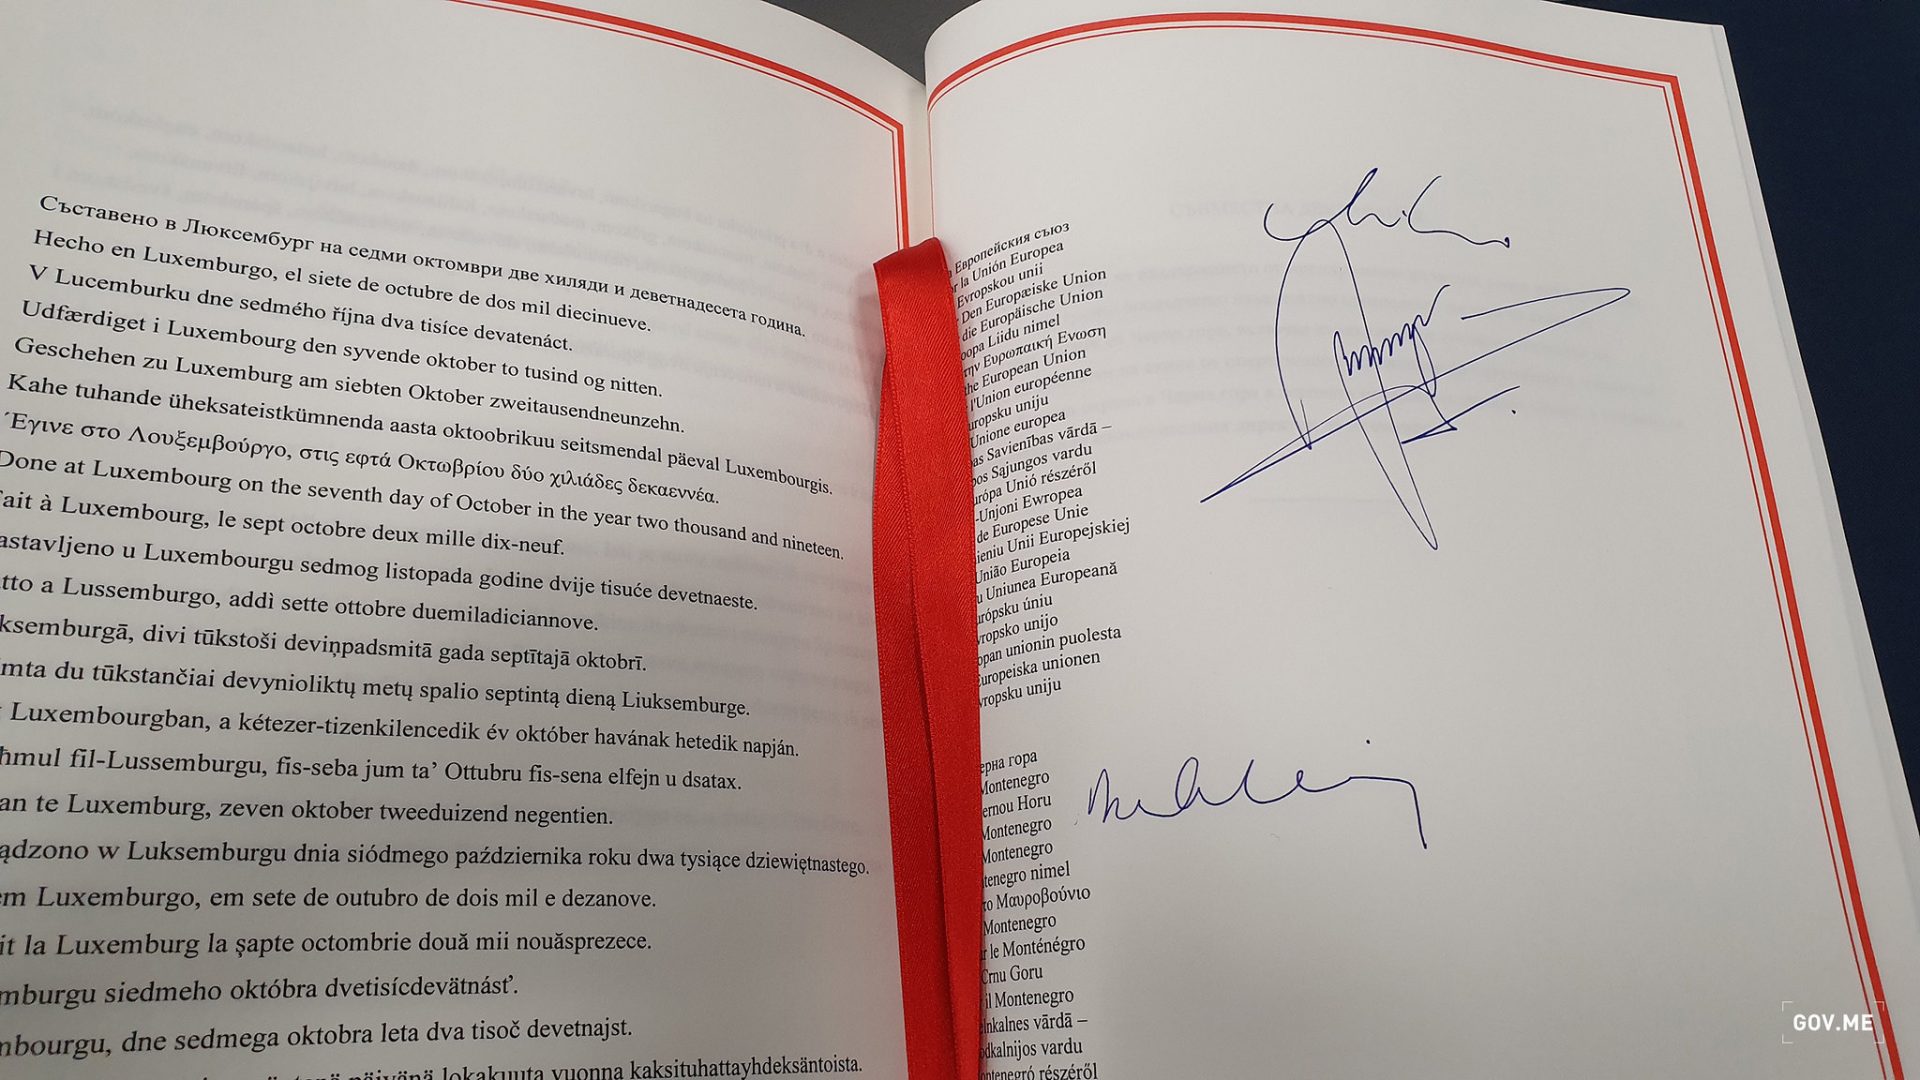 Съставено в Люксембург на седми октомври две хиляди и деветнадесета година.
Hecho en Luxemburgo, el siete de octubre de dos mil diecinueve.
V Lucemburku dne sedmého října dva tisíce devatenáct.
Udfærdiget i Luxembourg den syvende oktober to tusind og nitten.
Geschehen zu Luxemburg am siebten Oktober zweitausendneunzehn.
Kahe tuhande üheksateistkümnenda aasta oktoobrikuu seitsmendal päeval Luxembourgis.
Έγινε στο Λουξεμβούργο, στις εφτά Οκτωβρίου δύο χιλιάδες δεκαεννέα.
Done at Luxembourg on the seventh day of October in the year two thousand and nineteen.
ait à Luxembourg, le sept octobre deux mille dix-neuf.
astavljeno u Luxembourgu sedmog listopada godine dvije tisuće devetnaeste.
tto a Lussemburgo, addì sette ottobre duemiladiciannove.
ksemburgā, divi tūkstoši deviņpadsmitā gada septītajā oktobrī.
imta du tūkstančiai devynioliktų metų spalio septintą dieną Liuksemburge.
Luxembourgban, a kétezer-tizenkilencedik év október havának hetedik napján.
ħmul fil-Lussemburgu, fis-seba jum ta' Ottubru fis-sena elfejn u dsatax.
an te Luxemburg, zeven oktober tweeduizend negentien.
ądzono w Luksemburgu dnia siódmego października roku dwa tysiące dziewiętnastego.
em Luxemburgo, em sete de outubro de dois mil e dezanove.
it la Luxemburg la șapte octombrie două mii nouăsprezece.
mburgu siedmeho októbra dvetisícdevätnásť.
mbourgu, dne sedmega oktobra leta dva tisoč devetnajst.
päivänä lokakuuta vuonna kaksituhattayhdeksäntoista.
Европейския съюз
r la Unión Europea
Evropskou unii
Den Europæiske Union
die Europäische Union
oopa Liidu nimel
την Ευρωπαική Ενωση
the European Union
l'Union européenne
uropsku uniju
Unione europea
as Savienības vārdā –
pos Sąjungos vardu
urópa Unió részéről
-Unjoni Ewropea
de Europese Unie
ieniu Unii Europejskiej
União Europeia
u Uniunea Europeană
urópsku úniu
vropsko unijo
opan unionin puolesta
uropeiska unionen
vropsku uniju
ерна гора
Montenegro
ernou Horu
Montenegro
Montenegro
tenegro nimel
ο Μαυροβούνιο
Montenegro
r le Monténégro
Crnu Goru
il Montenegro
elnkalnes vārdā –
odkalnijos vardu
ontenegró részéről
GOV.ME